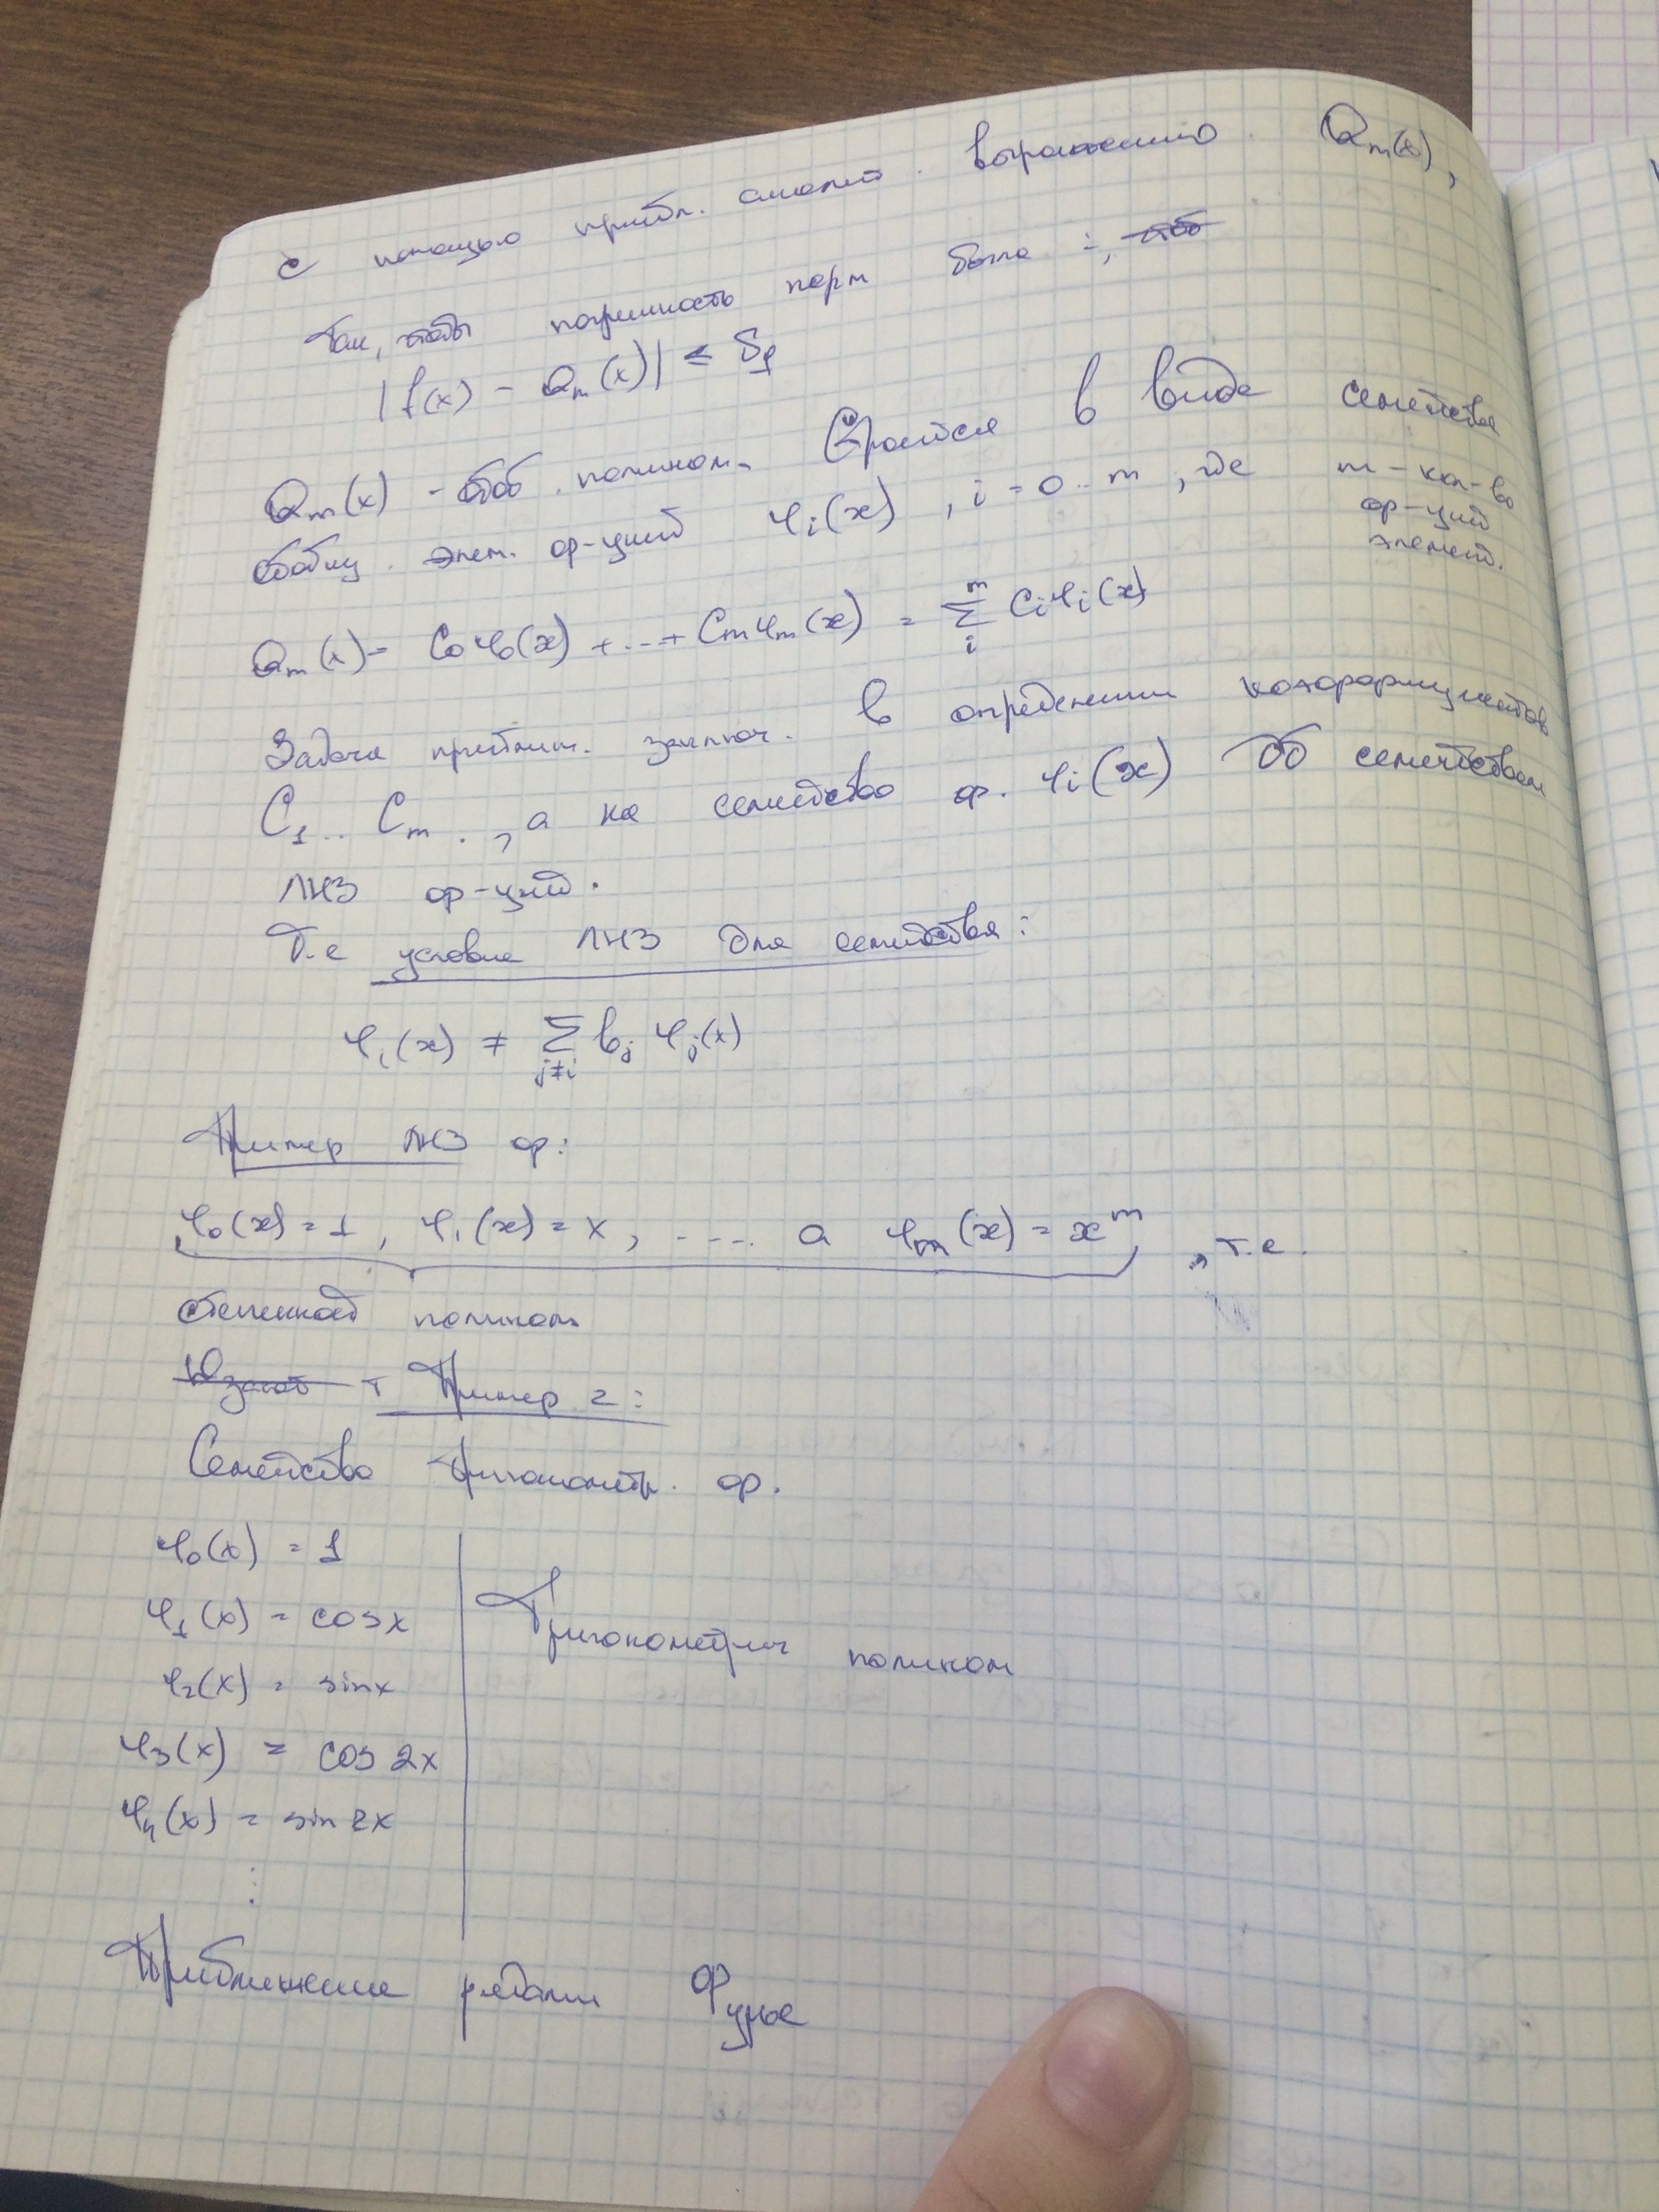 с помощью прибл. аналит. выражению Qm(x),
так, чтобы погрешность норм была :,
|f(x) - Qm(x)| ≤ δf
Qm(x) - обоб. полином. Строится в виде семейства
обобщ. элем. ф-ций φi(x), i = 0..m, где m - кол-во
ф-ций
элемент.
Qm(x) = C0φ0(x) + ... + Cmφm(x) = Σ_i^m Ciφi(x)
Задача приближ. заключ. в определении
C1 .. Cm., а на семейство ф. φi(x) семейством
ЛНЗ ф-ций.
Т.е условие ЛНЗ для семейства:
φi(x) ≠ Σ_{j≠i} bj φj(x)
Пример ЛНЗ ф:
φ0(x) = 1, φ1(x) = x, .... а φm(x) = x^m, т.е.
степенной полином
Пример 2:
Семейство тригонометр. ф.
φ0(x) = 1
φ1(x) = cosx
Тригонометрич полином
φ2(x) = sinx
φ3(x) = cos 2x
φ4(x) = sin 2x
⋮
Приближение рядами Фурье